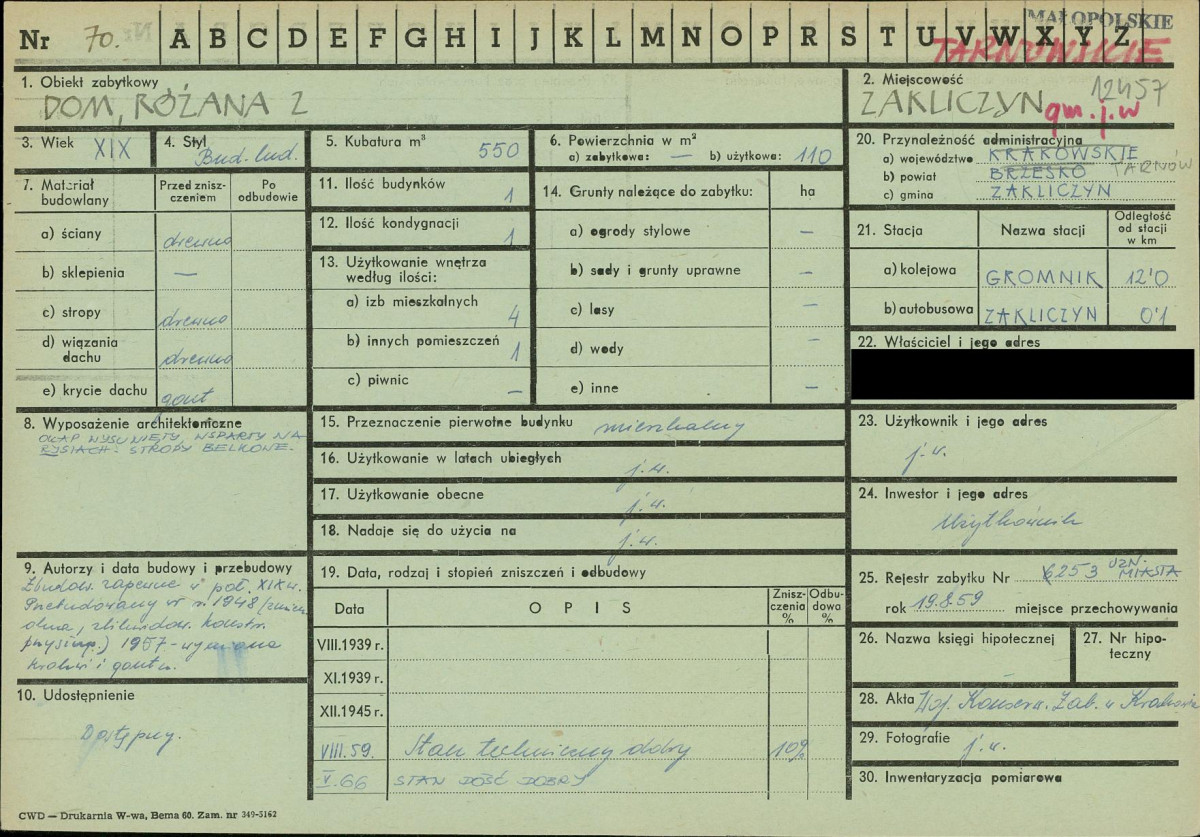 MAŁOPOLSKIE
Nr 70. A B C D E F G H I J K L M N O P R S T U V W X Y Z
TARNOWSKIE
1. Obiekt zabytkowy
DOM, RÓŻANA 2
2. Miejscowość
ZAKLICZYN 12457
gm. j.w
3. Wiek XIX
4. Styl Bud. lud.
5. Kubatura m³ 550
6. Powierzchnia w m²
a) zabytkowa: — b) użytkowa: 110
20. Przynależność administracyjna
a) województwo KRAKOWSKIE
TARNÓW
b) powiat BRZESKO
c) gmina ZAKLICZYN
7. Materiał budowlany
Przed zniszczeniem
Po odbudowie
a) ściany drewno
b) sklepienia —
c) stropy drewno
d) wiązania dachu drewno
e) krycie dachu gont
11. Ilość budynków 1
12. Ilość kondygnacji 1
13. Użytkowanie wnętrza według ilości:
a) izb mieszkalnych 4
b) innych pomieszczeń 1
c) piwnic —
14. Grunty należące do zabytku: ha
a) ogrody stylowe —
b) sady i grunty uprawne —
c) lasy —
d) wody —
e) inne —
21. Stacja
Nazwa stacji
Odległość od stacji w km
a) kolejowa GROMNIK 12'0
b) autobusowa ZAKLICZYN 0'1
22. Właściciel i jego adres
8. Wyposażenie architektoniczne
OKAP WYSUNIĘTY, WSPARTY NA
RYSIACH. STROPY BELKOWE.
15. Przeznaczenie pierwotne budynku mieszkalny
16. Użytkowanie w latach ubiegłych j.w.
17. Użytkowanie obecne j.w.
18. Nadaje się do użycia na j.w.
23. Użytkownik i jego adres
j.w.
24. Inwestor i jego adres
Użytkownik
9. Autorzy i data budowy i przebudowy
Zbudow. zapewne w poł. XIX w.
Przebudowany w r. 1948
okna, konstr.
1957 - wymiana
krokwi i gontu.
19. Data, rodzaj i stopień zniszczeń i odbudowy
Data
OPIS
Zniszczenia %
Odbudowa %
VIII.1939 r.
XI.1939 r.
XII.1945 r.
VIII.59. Stan techniczny dobry 10%
V.66 STAN DOŚĆ DOBRY
25. Rejestr zabytku Nr 6253 UZN. MIASTA
rok 19.8.59 miejsce przechowywania
26. Nazwa księgi hipotecznej
27. Nr hipoteczny
10. Udostępnienie
Dostępny.
28. Akta Woj. Konserw. Zab. w Krakowie
29. Fotografie j.w.
30. Inwentaryzacja pomiarowa
CWD — Drukarnia W-wa, Bema 60. Zam. nr 349-5162